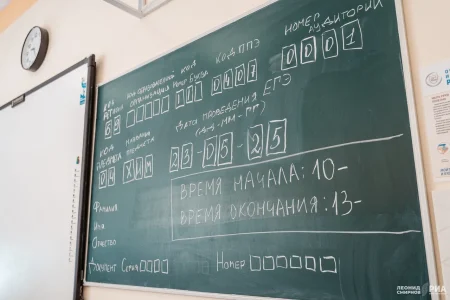 КОД РЕГИОНА
КОД ОБРАЗОВАТЕЛЬНОЙ ОРГАНИЗАЦИИ
КЛАСС
НОМЕР БУКВА
КОД ППЭ
НОМЕР АУДИТОРИИ
0401
0001
КОД ПРЕДМЕТА
НАЗВАНИЕ ПРЕДМЕТА
ДАТА ПРОВЕДЕНИЯ ЕГЭ
(ДД-ММ-ГГ)
04
ХИМ
23-05-25
ВРЕМЯ НАЧАЛА: 10-
ВРЕМЯ ОКОНЧАНИЯ: 13-
Фамилия
Имя
Отчество
Документ Серия
Номер
ЛЕОНИД СМИРНОВ
РИА